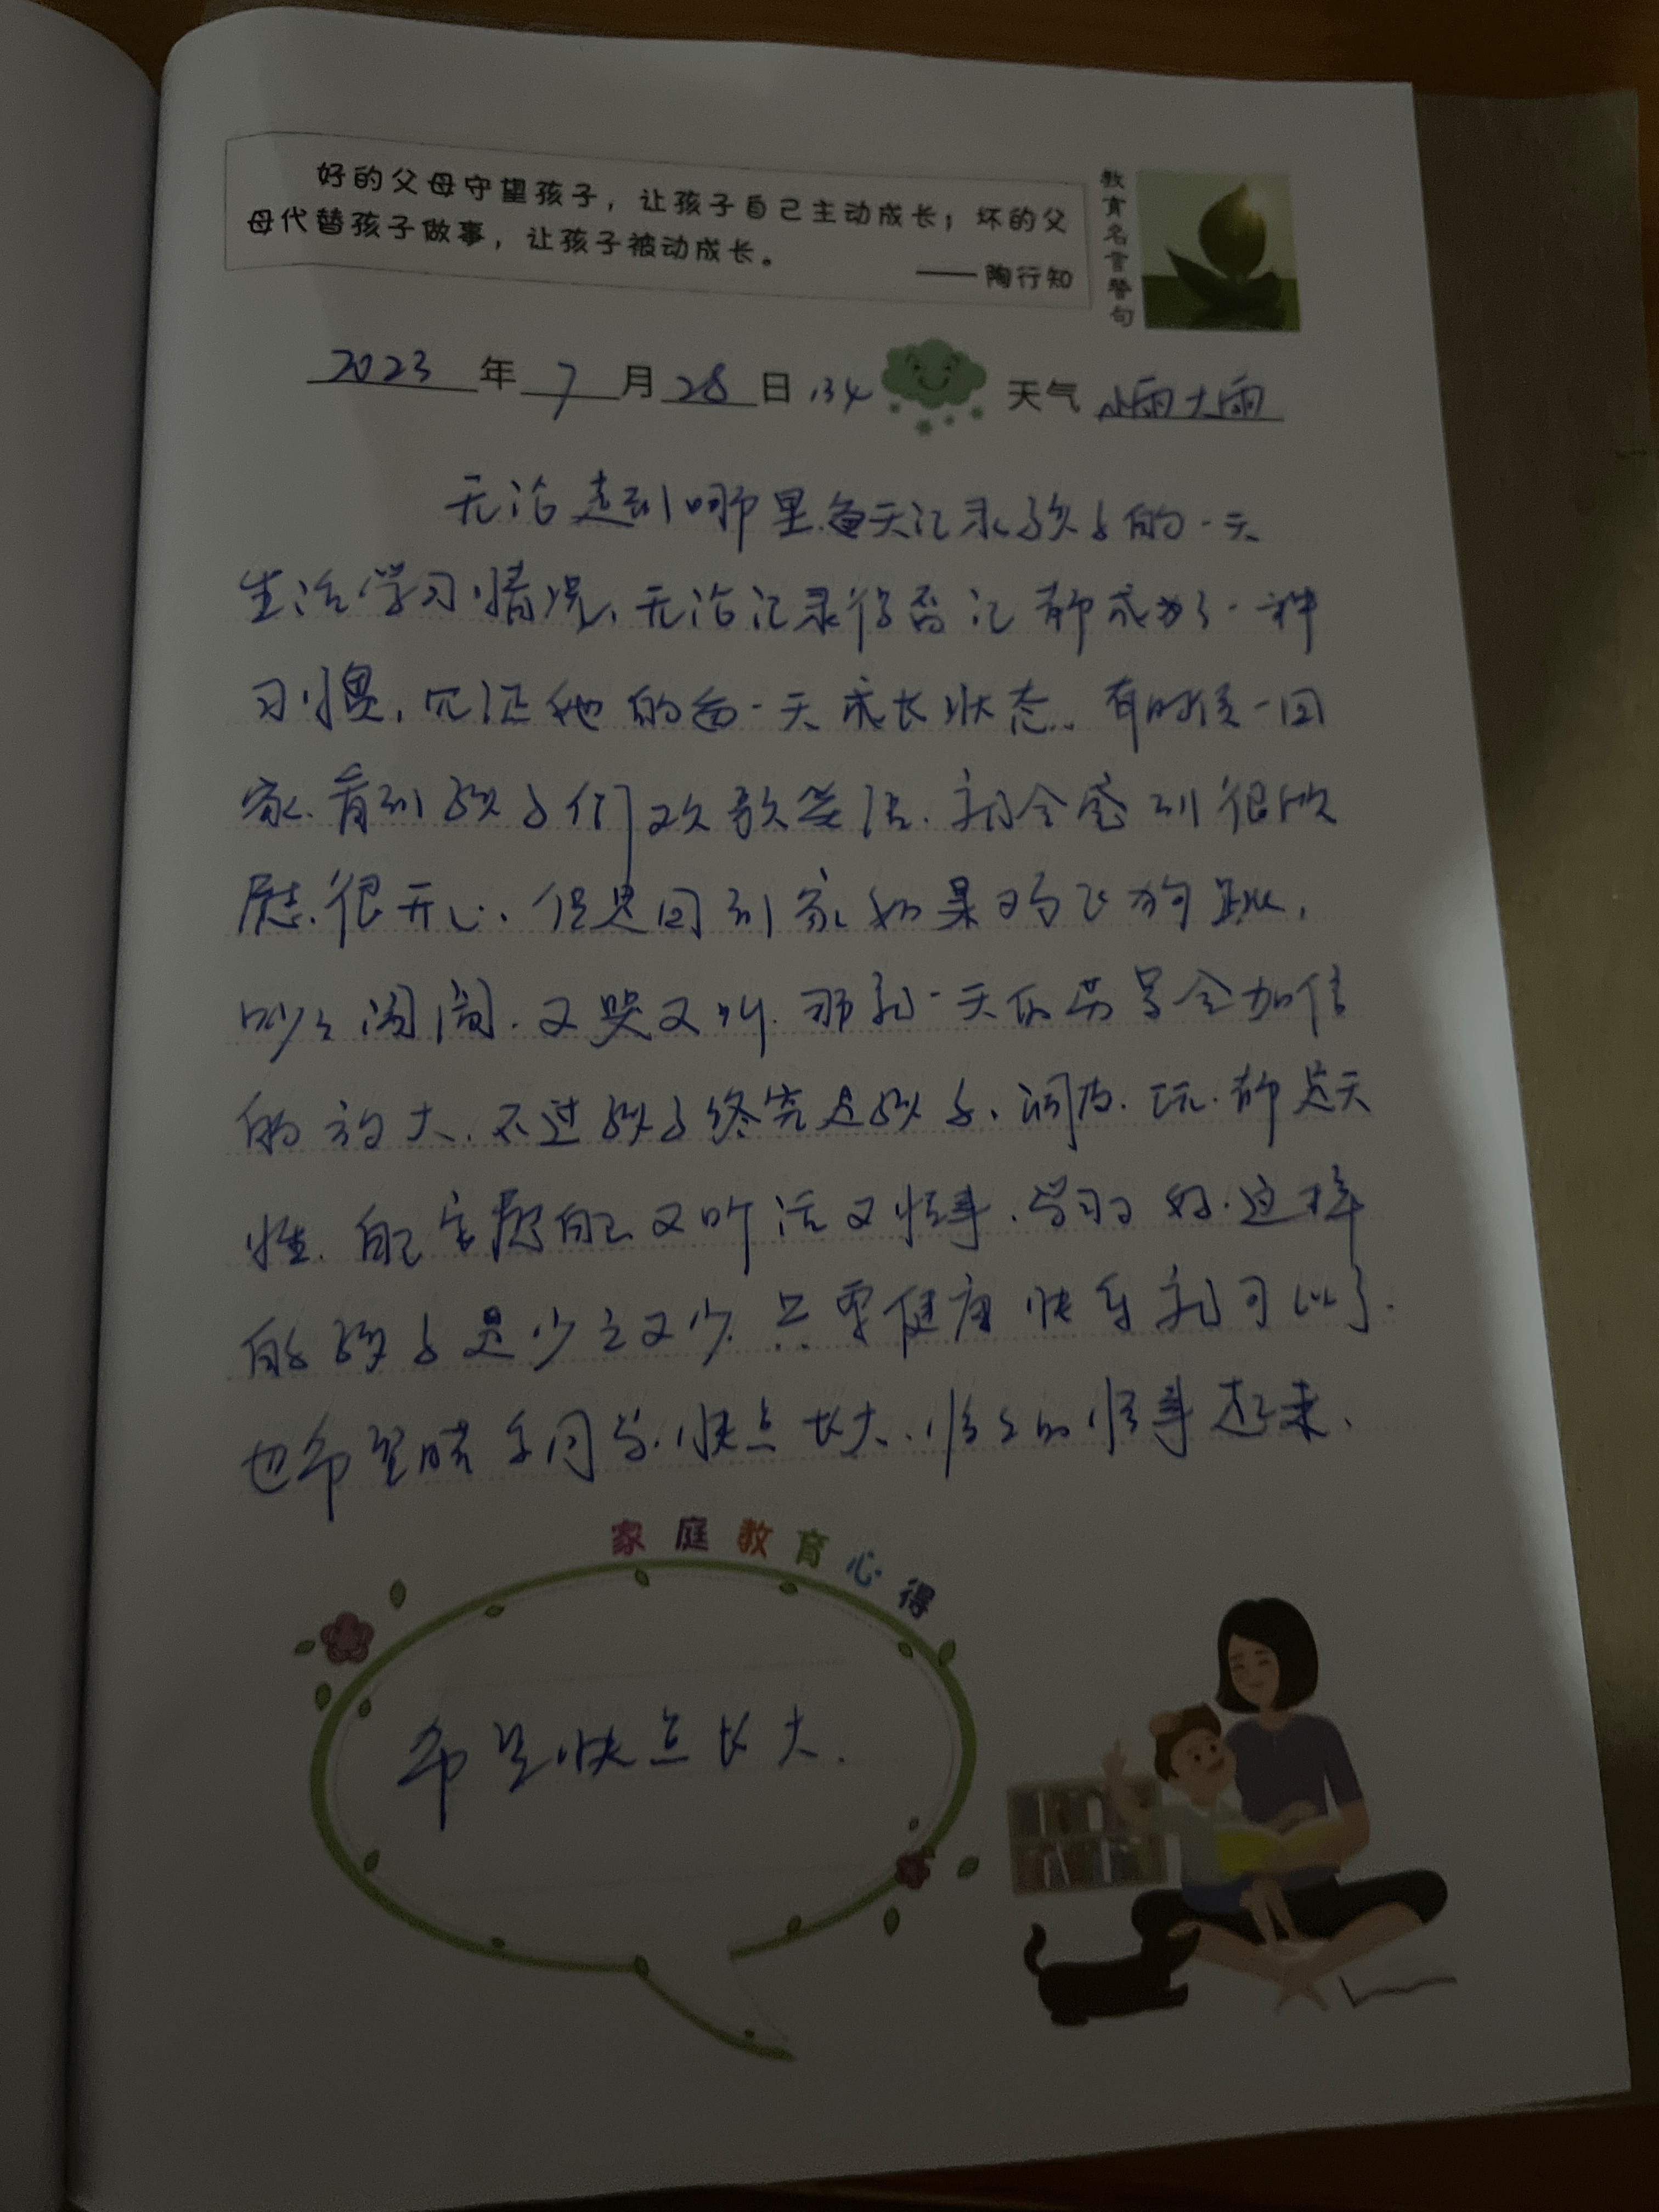 好的父母守望孩子，让孩子自己主动成长；坏的父
母代替孩子做事，让孩子被动成长。
——陶行知
教育名言警句
2023年7月28日 134 天气 小雨大雨
无论走到哪里.每天记录孩子的一天
生活学习情况、无论记录得否记都成为了一种
习惯，见证他的每一天成长状态、有时候一回
家.看到孩子们欢歌笑语.就会感到很欣
慰.很开心、但是回到家如果鸡飞狗跳，
吵吵闹闹.又哭又叫.那就一天的劳累会加倍
的放大.不过孩子终究是孩子、调皮.玩.都是天
性.自己宁愿自己又听话又懂事、学习好.这样
的孩子是少之又少.只要健康快乐就可以了.
也希望晴午同学.快点长大、慢慢的懂事起来、
家庭教育心得
希望快点长大.